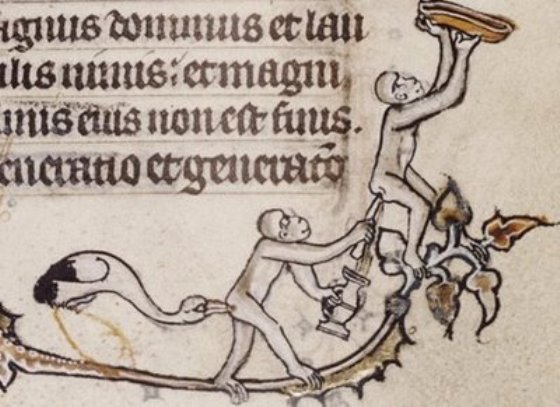 agnus dominus et lau
ilis nimis: et magni
inis eius non est finis.
eneratio et generatō